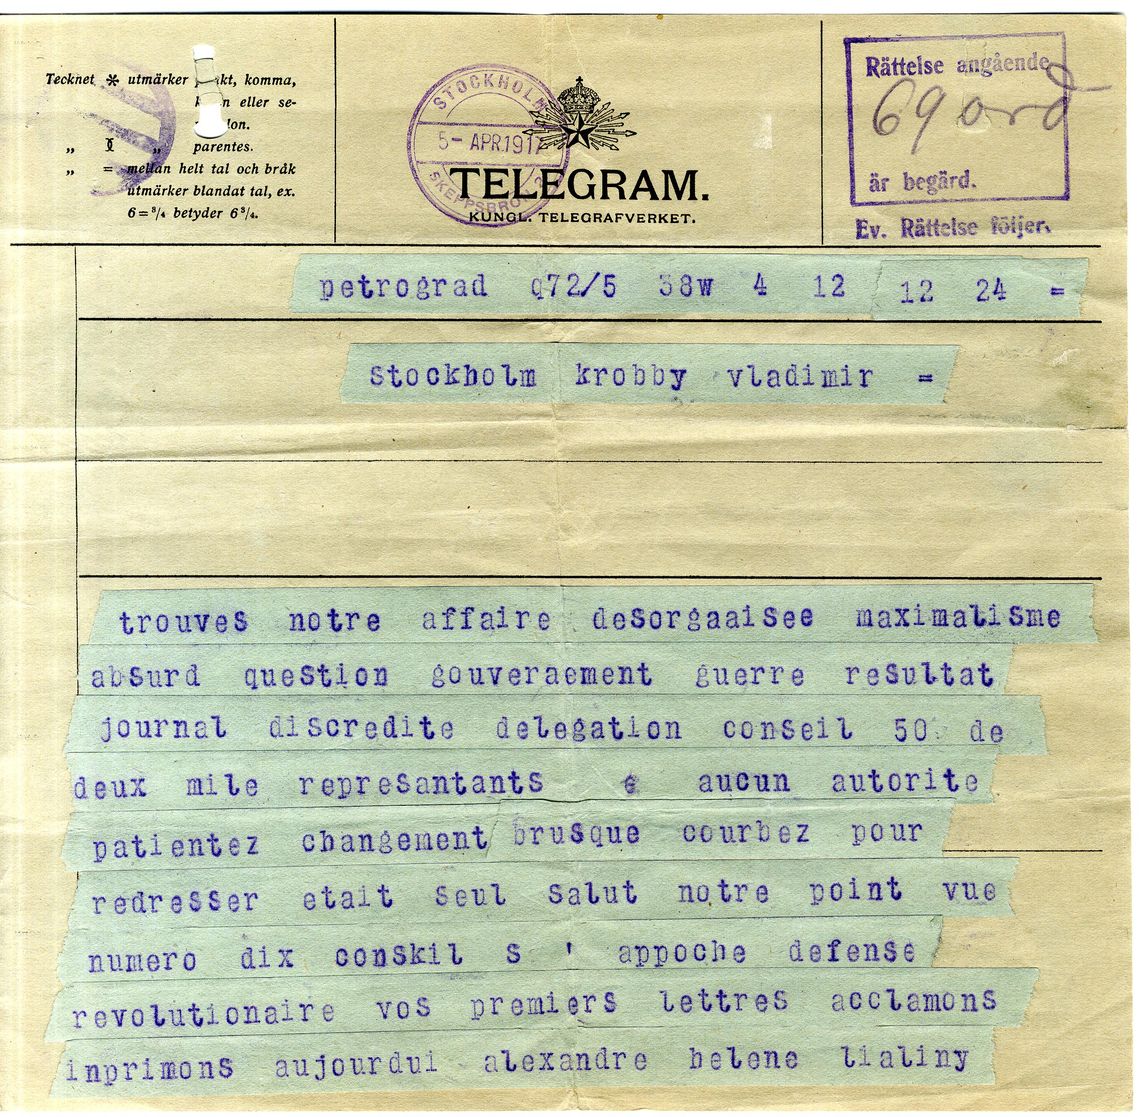 Tecknet * utmärker kt, komma,
eller se-
lon.
„ „ parentes.
„ = mellan helt tal och bråk
utmärker blandat tal, ex.
6=³/₄ betyder 6³/₄.
STOCKHOLM
5-APR.1917
TELEGRAM.
KUNGL. TELEGRAFVERKET.
Rättelse angående
69 ord
är begärd.
Ev. Rättelse följer.
petrograd q72/5 38w 4 12 12 24 =
stockholm krobby vladimir =
trouves notre affaire desorgaaisee maximalisme
absurd question gouveraement guerre resultat
journal discredite delegation conseil 50 de
deux mile represantants e aucun autorite
patientez changement brusque courbez pour
redresser etait seul salut notre point vue
numero dix conskil s ' appoche defense
revolutionaire vos premiers lettres acclamons
inprimons aujourdui alexandre helene lialiny